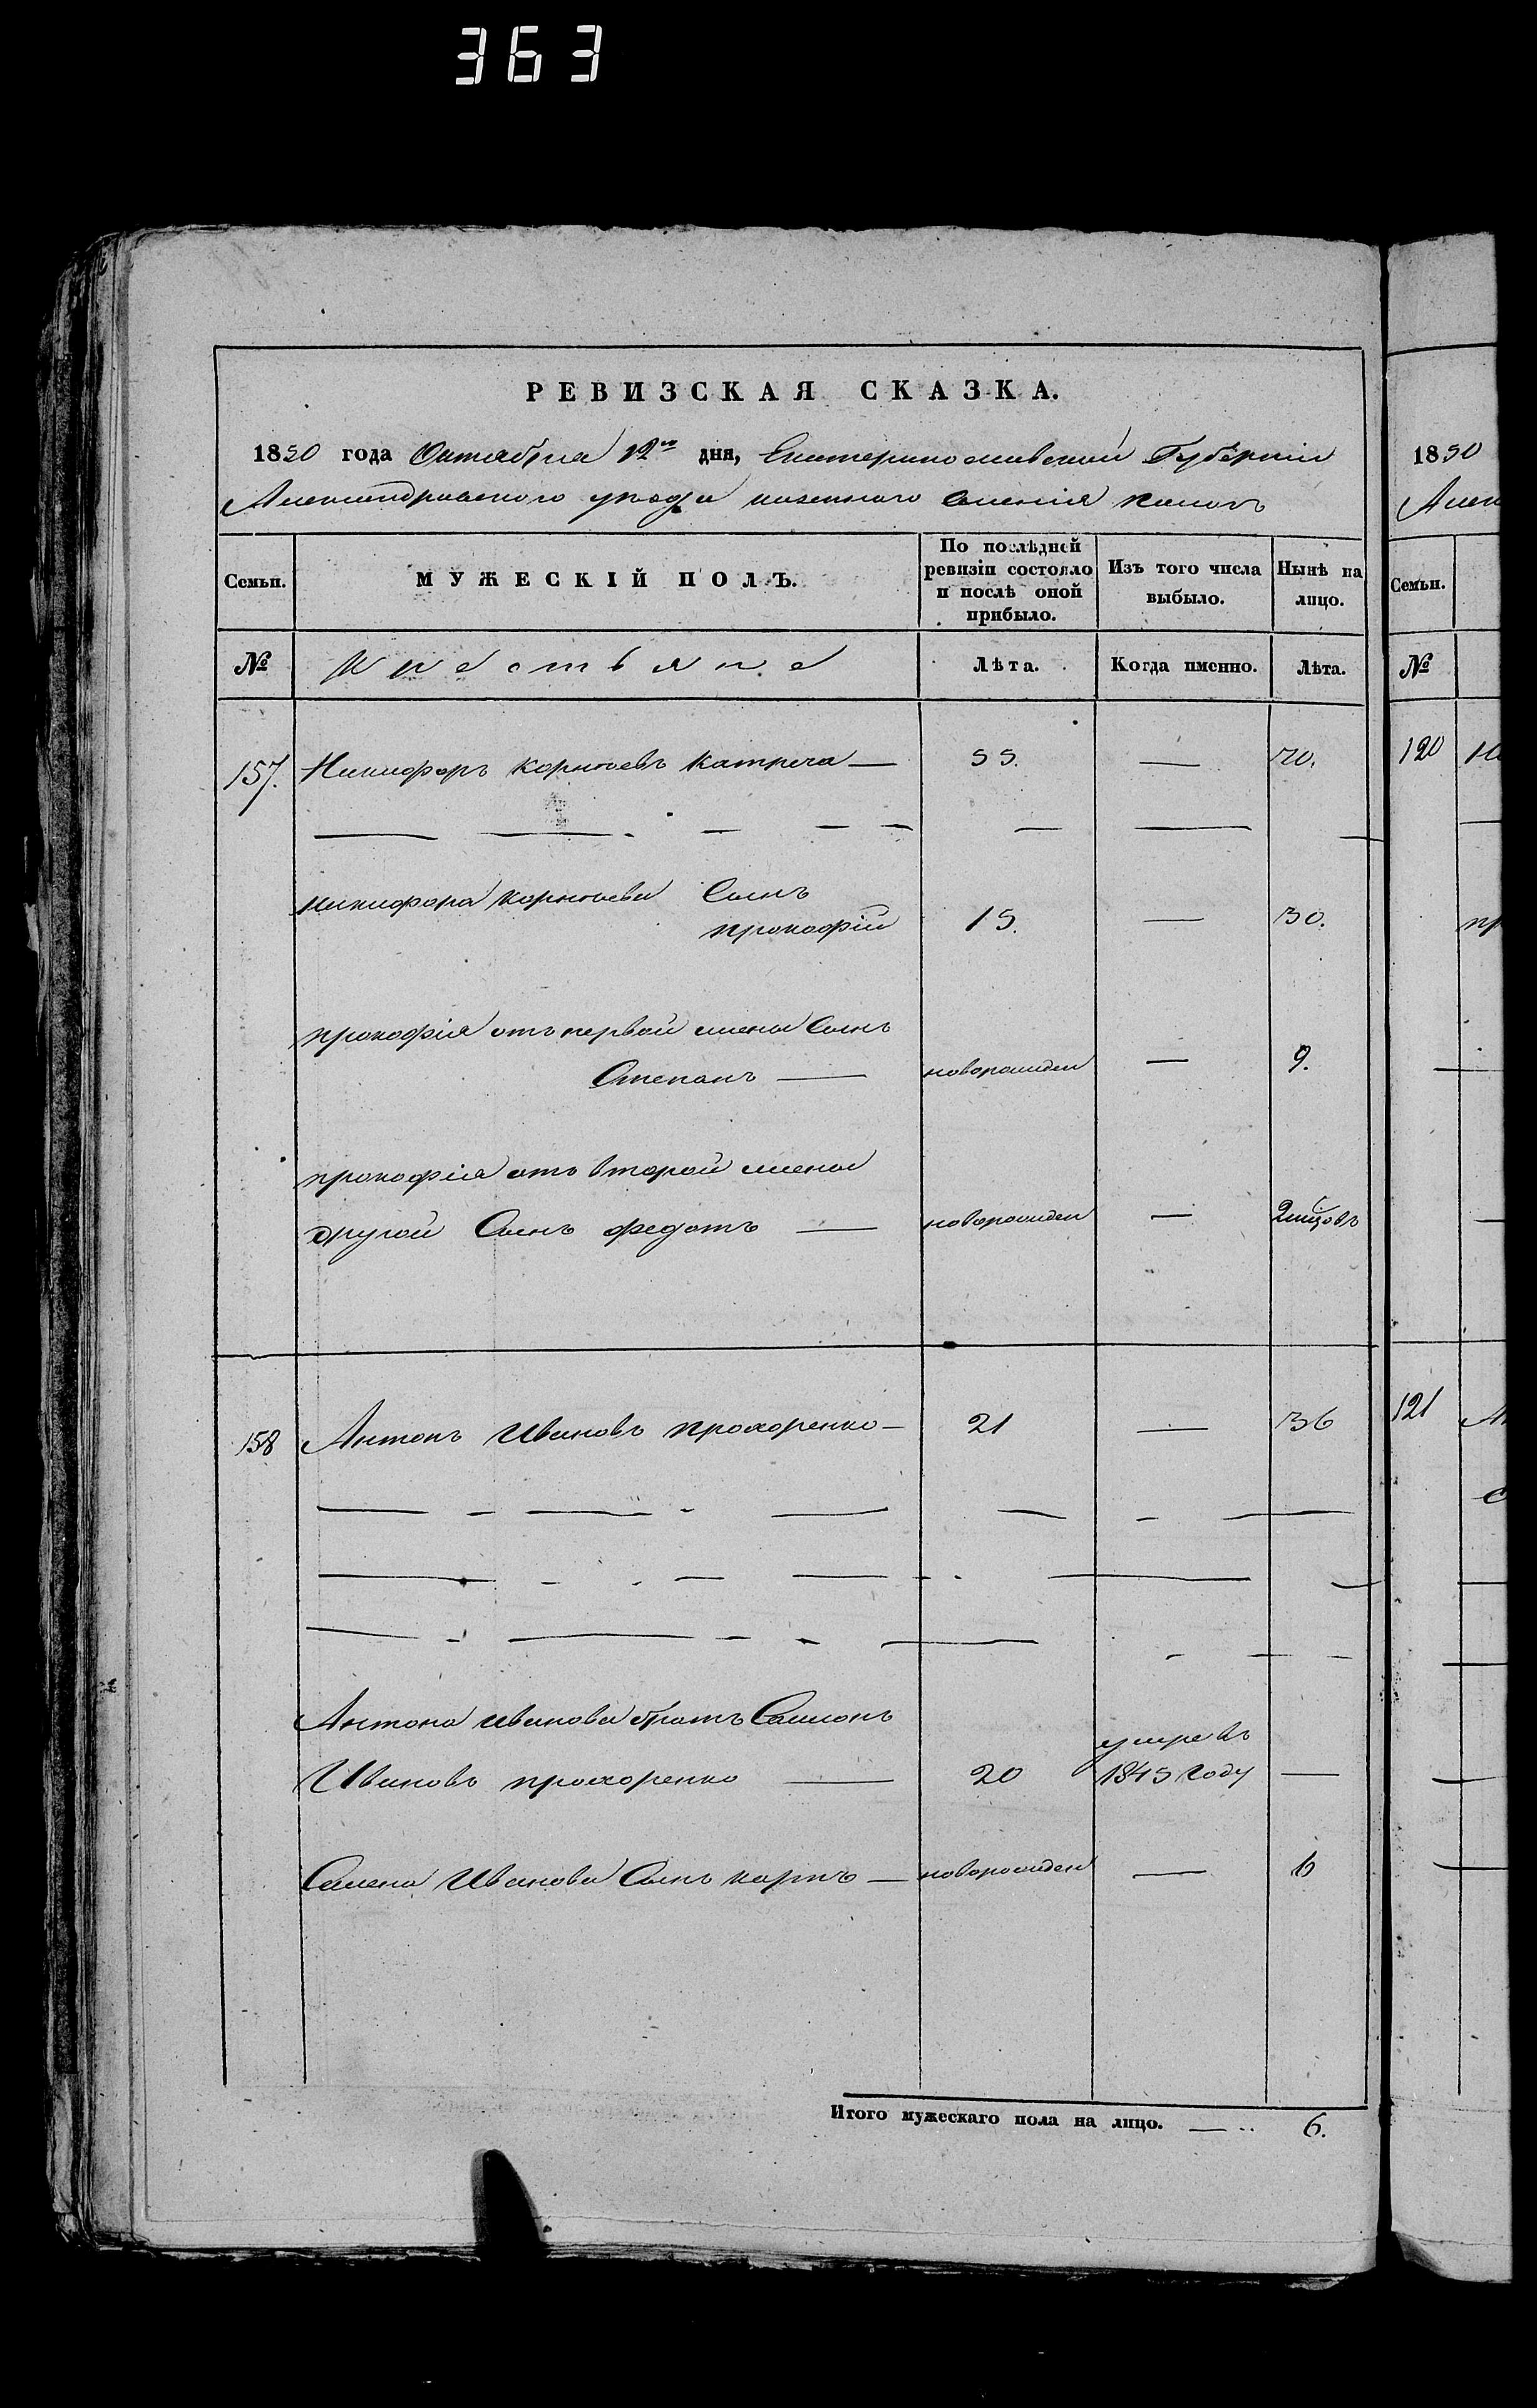 363
РЕВИЗСКАЯ СКАЗКА.
1850 года Октября 12го дня, Екатеринославской Губерніи
Александровского уезда казенного Селенія
Семьи.
МУЖЕСКІЙ ПОЛЪ.
По послѣдней ревизіи состояло и послѣ оной прибыло.
Изъ того числа выбыло.
Нынѣ на лицо.
№ Крестьяне Лѣта. Когда именно. Лѣта.
157. Никифоръ Корнѣевъ Катреча — 55. — 70.
Никифора Корнѣева Сынъ
Прокофій 15. — 30.
Прокофія отъ первой жены Сынъ
Степанъ — новорожден — 9.
Прокофія отъ второй жены
другой Сынъ Федотъ — новорожден — 2 мцовъ
158 Антонъ Ивановъ Прохоренко — 21 — 36
Антона Иванова братъ Самионъ
Ивановъ Прохоренко — 20 умре въ 1845 году —
Семена Иванова Сынъ Карпъ — новорожден — 6
Итого мужескаго пола на лицо. — 6.
1850
Алек
Семьи.
№
120 Ни
пр
121 Ан
С